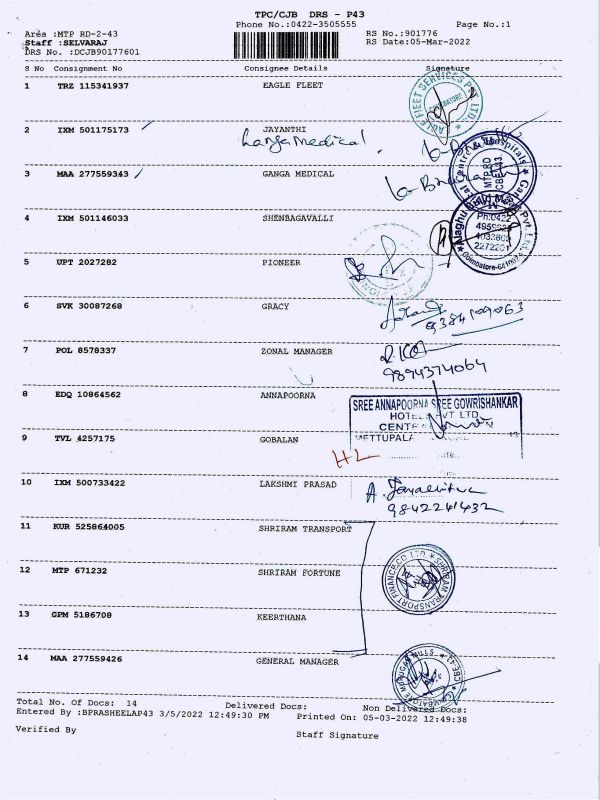 TPC/CJB DRS - P43
Phone No.:0422-3505555 Page No.:1
Area :MTP RD-2-43 RS No.:901776
Staff :SELVARAJ RS Date:05-Mar-2022
DRS No. :DCJB90177601
S No Consignment No Consignee Details Signature
1 TRZ 115341937 EAGLE FLEET
2 IXM 501175173 JAYANTHI
Ganga Medical.
3 MAA 277559343 GANGA MEDICAL
4 IXM 501146033 SHENBAGAVALLI
Ph:0422
2272201
Coimbatore-641
5 UPT 2027282 PIONEER
6 SVK 30087268 GRACY
9384109063
7 POL 8578337 ZONAL MANAGER
9894374064
8 EDQ 10864562 ANNAPOORNA
SREE ANNAPOORNA SREE GOWRISHANKAR
HOTELS PVT LTD
9 TVL 4257175 GOBALAN
METTUPALA
HL
10 IXM 500733422 LAKSHMI PRASAD
9842241432
11 KUR 525864005 SHRIRAM TRANSPORT
12 MTP 671232 SHRIRAM FORTUNE
SHRIRAM TRANSPORT FINANCE CO LTD
13 GPM 5186708 KEERTHANA
14 MAA 277559426 GENERAL MANAGER
Total No. Of Docs: 14 Delivered Docs: Non Delivered Docs:
Entered By :BPRASHEELAP43 3/5/2022 12:49:30 PM Printed On: 05-03-2022 12:49:38
Verified By Staff Signature